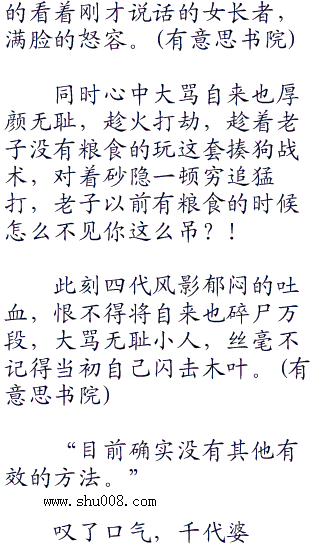 的看着刚才说话的女长者，
满脸的怒容。(有意思书院)
同时心中大骂自来也厚
颜无耻，趁火打劫，趁着老
子没有粮食的玩这套揍狗战
术，对着砂隐一顿穷追猛
打，老子以前有粮食的时候
怎么不见你这么吊？！
此刻四代风影郁闷的吐
血，恨不得将自来也碎尸万
段，大骂无耻小人，丝毫不
记得当初自己闪击木叶。(有
意思书院)
“目前确实没有其他有
效的方法。”
www.shu008.com
叹了口气，千代婆